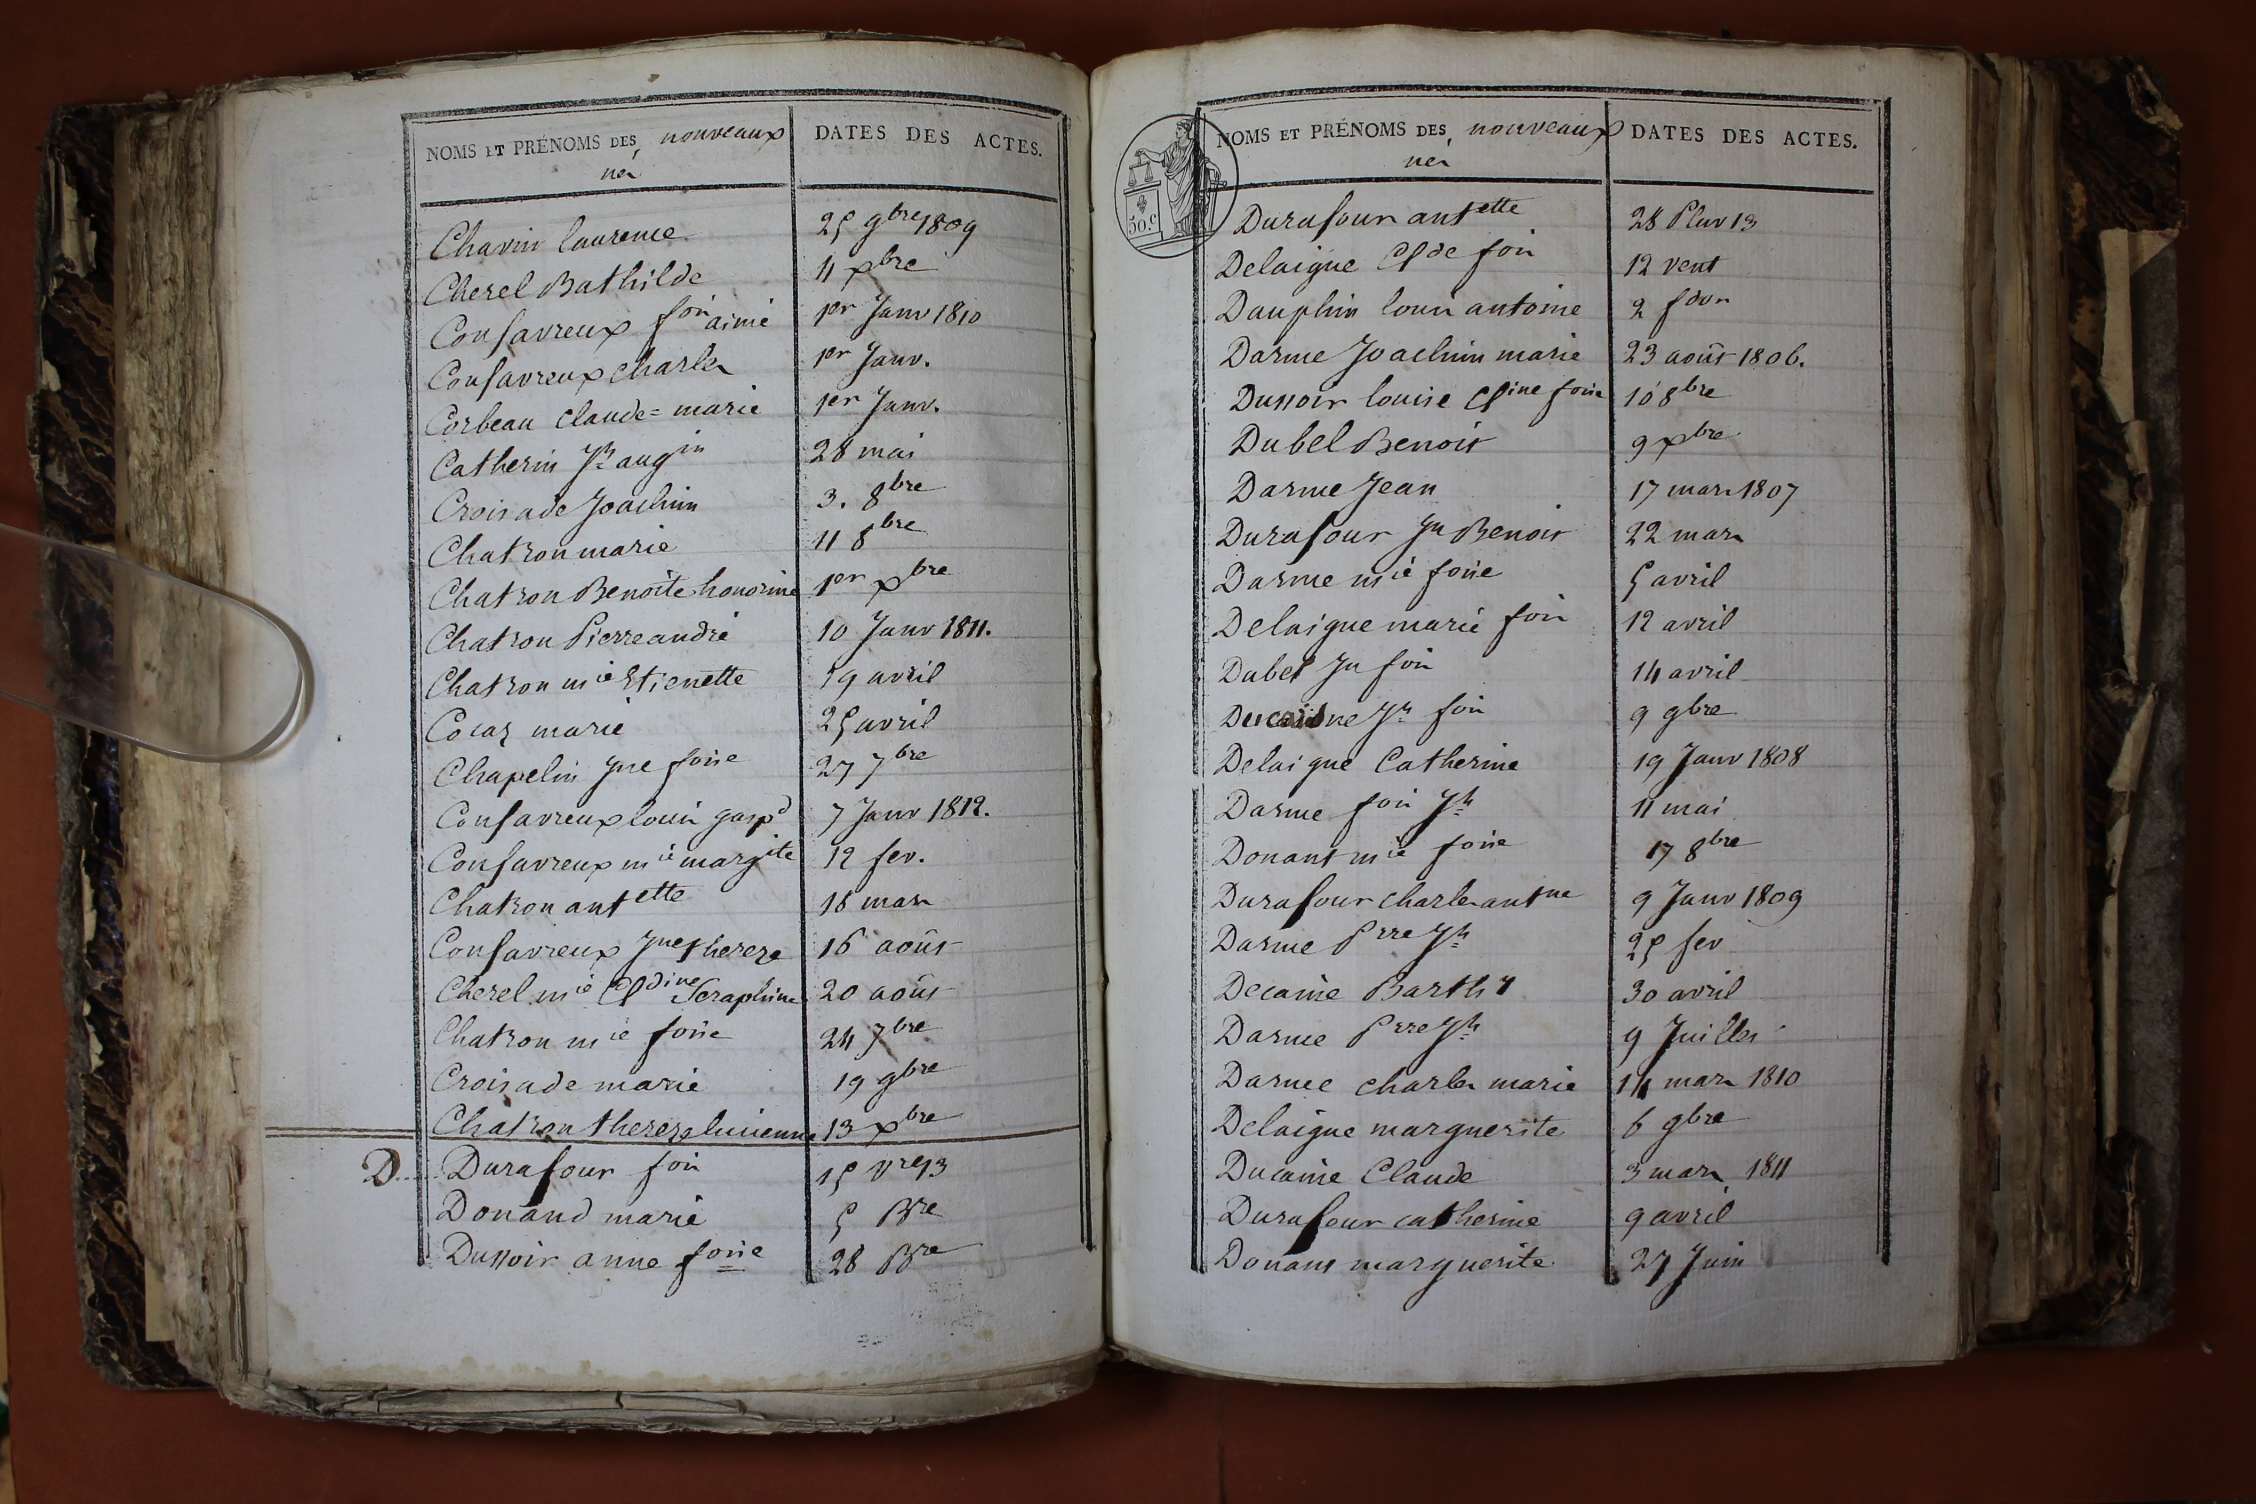 NOMS ET PRÉNOMS DES nouveaux DATES DES ACTES.
nés
Chavin laurence 25 9bre 1809
Cherel Bathilde 11 xbre
Confavreux fois aimé 1er Janv 1810
Confavreux charles 1er Janv.
Corbeau claude=marie 1er Janv.
Catherin Jh augin 28 mai
Croisade Joachim 3. 8bre
Chatron marie 11 8bre
Chatron Benoite honorine 1er xbre
Chatron Pierre andré 10 Janv 1811.
Chatron mie Etienette 19 avril
Cocaz marie 25 avril
Chapelin Jne foise 27 7bre
Confavreux louis gaspd 7 Janv 1812.
Confavreux mie margite 12 fev.
Chatron antette 18 mars
Confavreux Jne thereze 16 août
Cherel mie Cldine Seraphine 20 août
Chatron mie foise 24 7bre
Croisade marie 19 9bre
Chatron thereze lucienne 13 xbre
D.... Durafour fois 15 vre 13
Donand marie 5 Bre
Dussoir anne foise 28 Bre
50.c
NOMS ET PRÉNOMS DES nouveaux DATES DES ACTES.
nés
Durafour antette 28 Pluv 13
Delaigue Clde fois 12 vent
Dauphin louis antoine 2 fdor
Darme Joachim marie 23 août 1806.
Dussoir louise Cline foise 10 8bre
Dubel Benoit 9 xbre
Darme Jean 17 mars 1807
Durafour Jn Benoit 22 mars
Darme mie foise 5 avril
Delaigue marie fois 12 avril
Dubel Jn fois 14 avril
Jh fois 9 9bre
Delaigue Catherine 19 Janv 1808
Darme fois Jh 11 mai
Donant mie foise 17 8bre
Durafour charles antne 9 Janv 1809
Darme Prre Jh 25 fev
Decaine Barthy 30 avril
Darme Prre Jh 9 Juillet
Darme charles marie 14 mars 1810
Delaigue marguerite 6 9bre
Ducaine Claude 3 mars 1811
Durafour catherine 9 avril
Donant marguerite 27 Juin